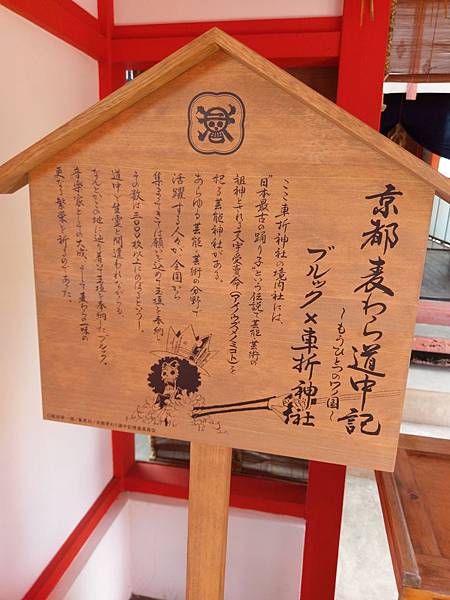 京都 麦わら道中記
〜もうひとつのワノ国〜
ブルック×車折神社
ここ車折神社の境内社には、
"日本最古の踊り子"という伝説で芸能・芸術の
祖神とされる天宇受売命(アメノウズメノミコト)を
祀る芸能神社がある。
あらゆる芸能・芸術の分野で
活躍する人々が全国から
集まってきては願いを込めて玉垣を奉納し、
その数は三〇〇〇枚以上にのぼるという―。
道中で生霊と間違われながらも、
なんとかこの地に辿り着き玉垣を奉納したブルック。
音楽家としての大成、そして麦わらの一味の
更なる繁栄を祈るのであった。
©尾田栄一郎/集英社・京都麦わら道中記推進委員会